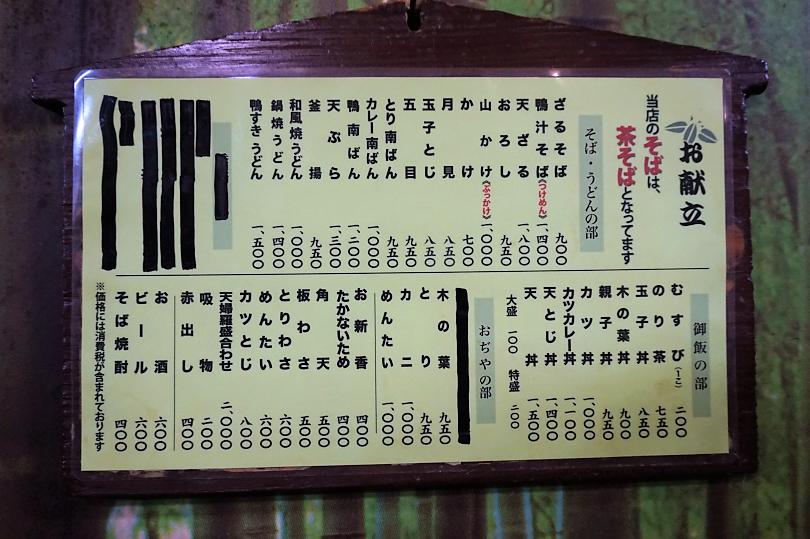 お献立
当店のそばは、
茶そばとなってます
そば・うどんの部
ざるそば 九〇〇
鴨汁そば(つけめん) 一、四〇〇
天ざる 一、八〇〇
おろし 九五〇
山かけ(ぶっかけ) 一、〇〇〇
かけ 七〇〇
月見 八五〇
玉子とじ 八五〇
五目 九五〇
とり南ばん 九五〇
カレー南ばん 一、〇〇〇
鴨南ばん 一、二〇〇
天ぷら 一、三〇〇
釜揚 九五〇
和風焼うどん
鍋焼うどん 一、四〇〇
鴨すきうどん 一、五〇〇
御飯の部
むすび(1こ) 二〇〇
のり茶 七五〇
玉子丼 八五〇
木の葉丼 九〇〇
親子丼 九五〇
カツ丼 一、〇〇〇
カツカレー丼 一、一〇〇
天とじ丼 一、四〇〇
天丼 一、五〇〇
大盛 一〇〇 特盛 二〇〇
おぢやの部
木の葉 九五〇
とり 九五〇
カニ 一、〇〇〇
めんたい 一、〇〇〇
お新香 四〇〇
たかないため 四〇〇
角天 五〇〇
板わさ 五〇〇
とりわさ 六〇〇
めんたい 六〇〇
カツとじ 八〇〇
天婦羅盛合わせ 二、〇〇〇
吸物 二〇〇
赤出し 四〇〇
お酒 六〇〇
ビール 六〇〇
そば焼酎 四〇〇
※価格には消費税が含まれております